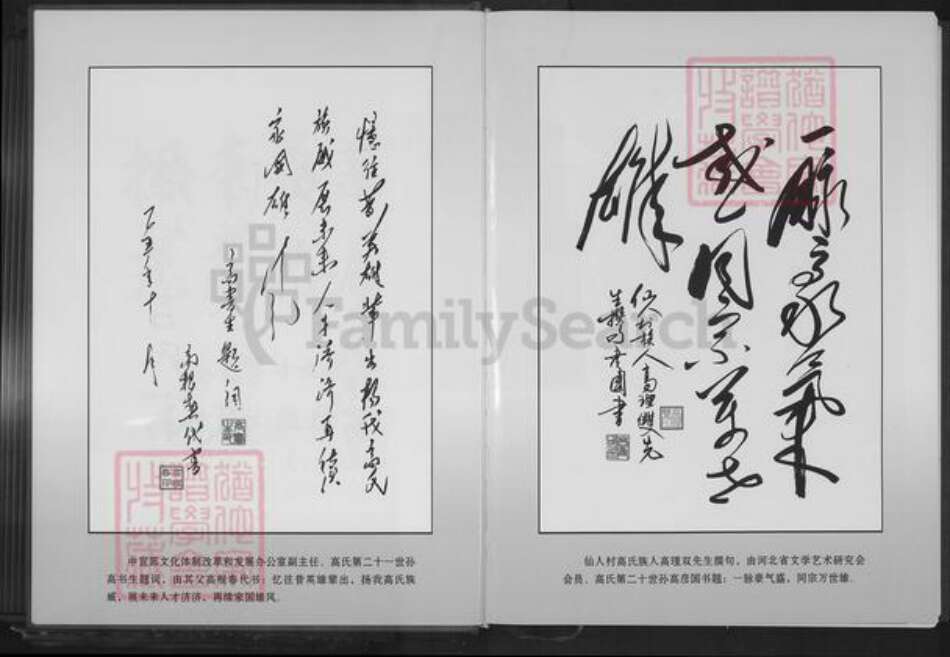 憶往昔英雄辈出扬我高氏
族威展未来人才济济再续
家国雄风
高书生题词
高根春代书
一脉豪气
盛同宗万世
雄
仙人村族人高理双先
生撰句彦国书
中宣部文化体制改革和发展办公室副主任、高氏第二十一世孙
高书生题词，由其父高根春代书：忆往昔英雄辈出，扬我高氏族
威，展未来人才济济，再续家国雄风。
仙人村高氏族人高理双先生撰句，由河北省文学艺术研究会
会员、高氏第二十世孙高彦国书题：一脉豪气盛，同宗万世雄。
FamilySearch